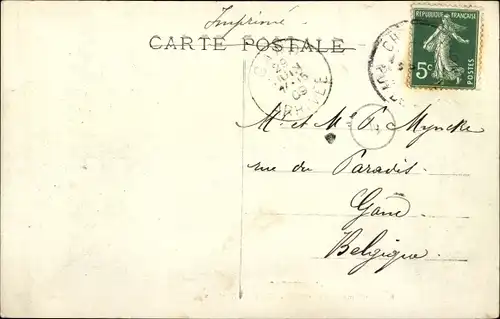 Imprimé
CARTE POSTALE
RÉPUBLIQUE FRANÇAISE
5c
POSTES
ARRIVÉE
M. et M. P. Myncke
rue du Paradis
Gand
Belgique